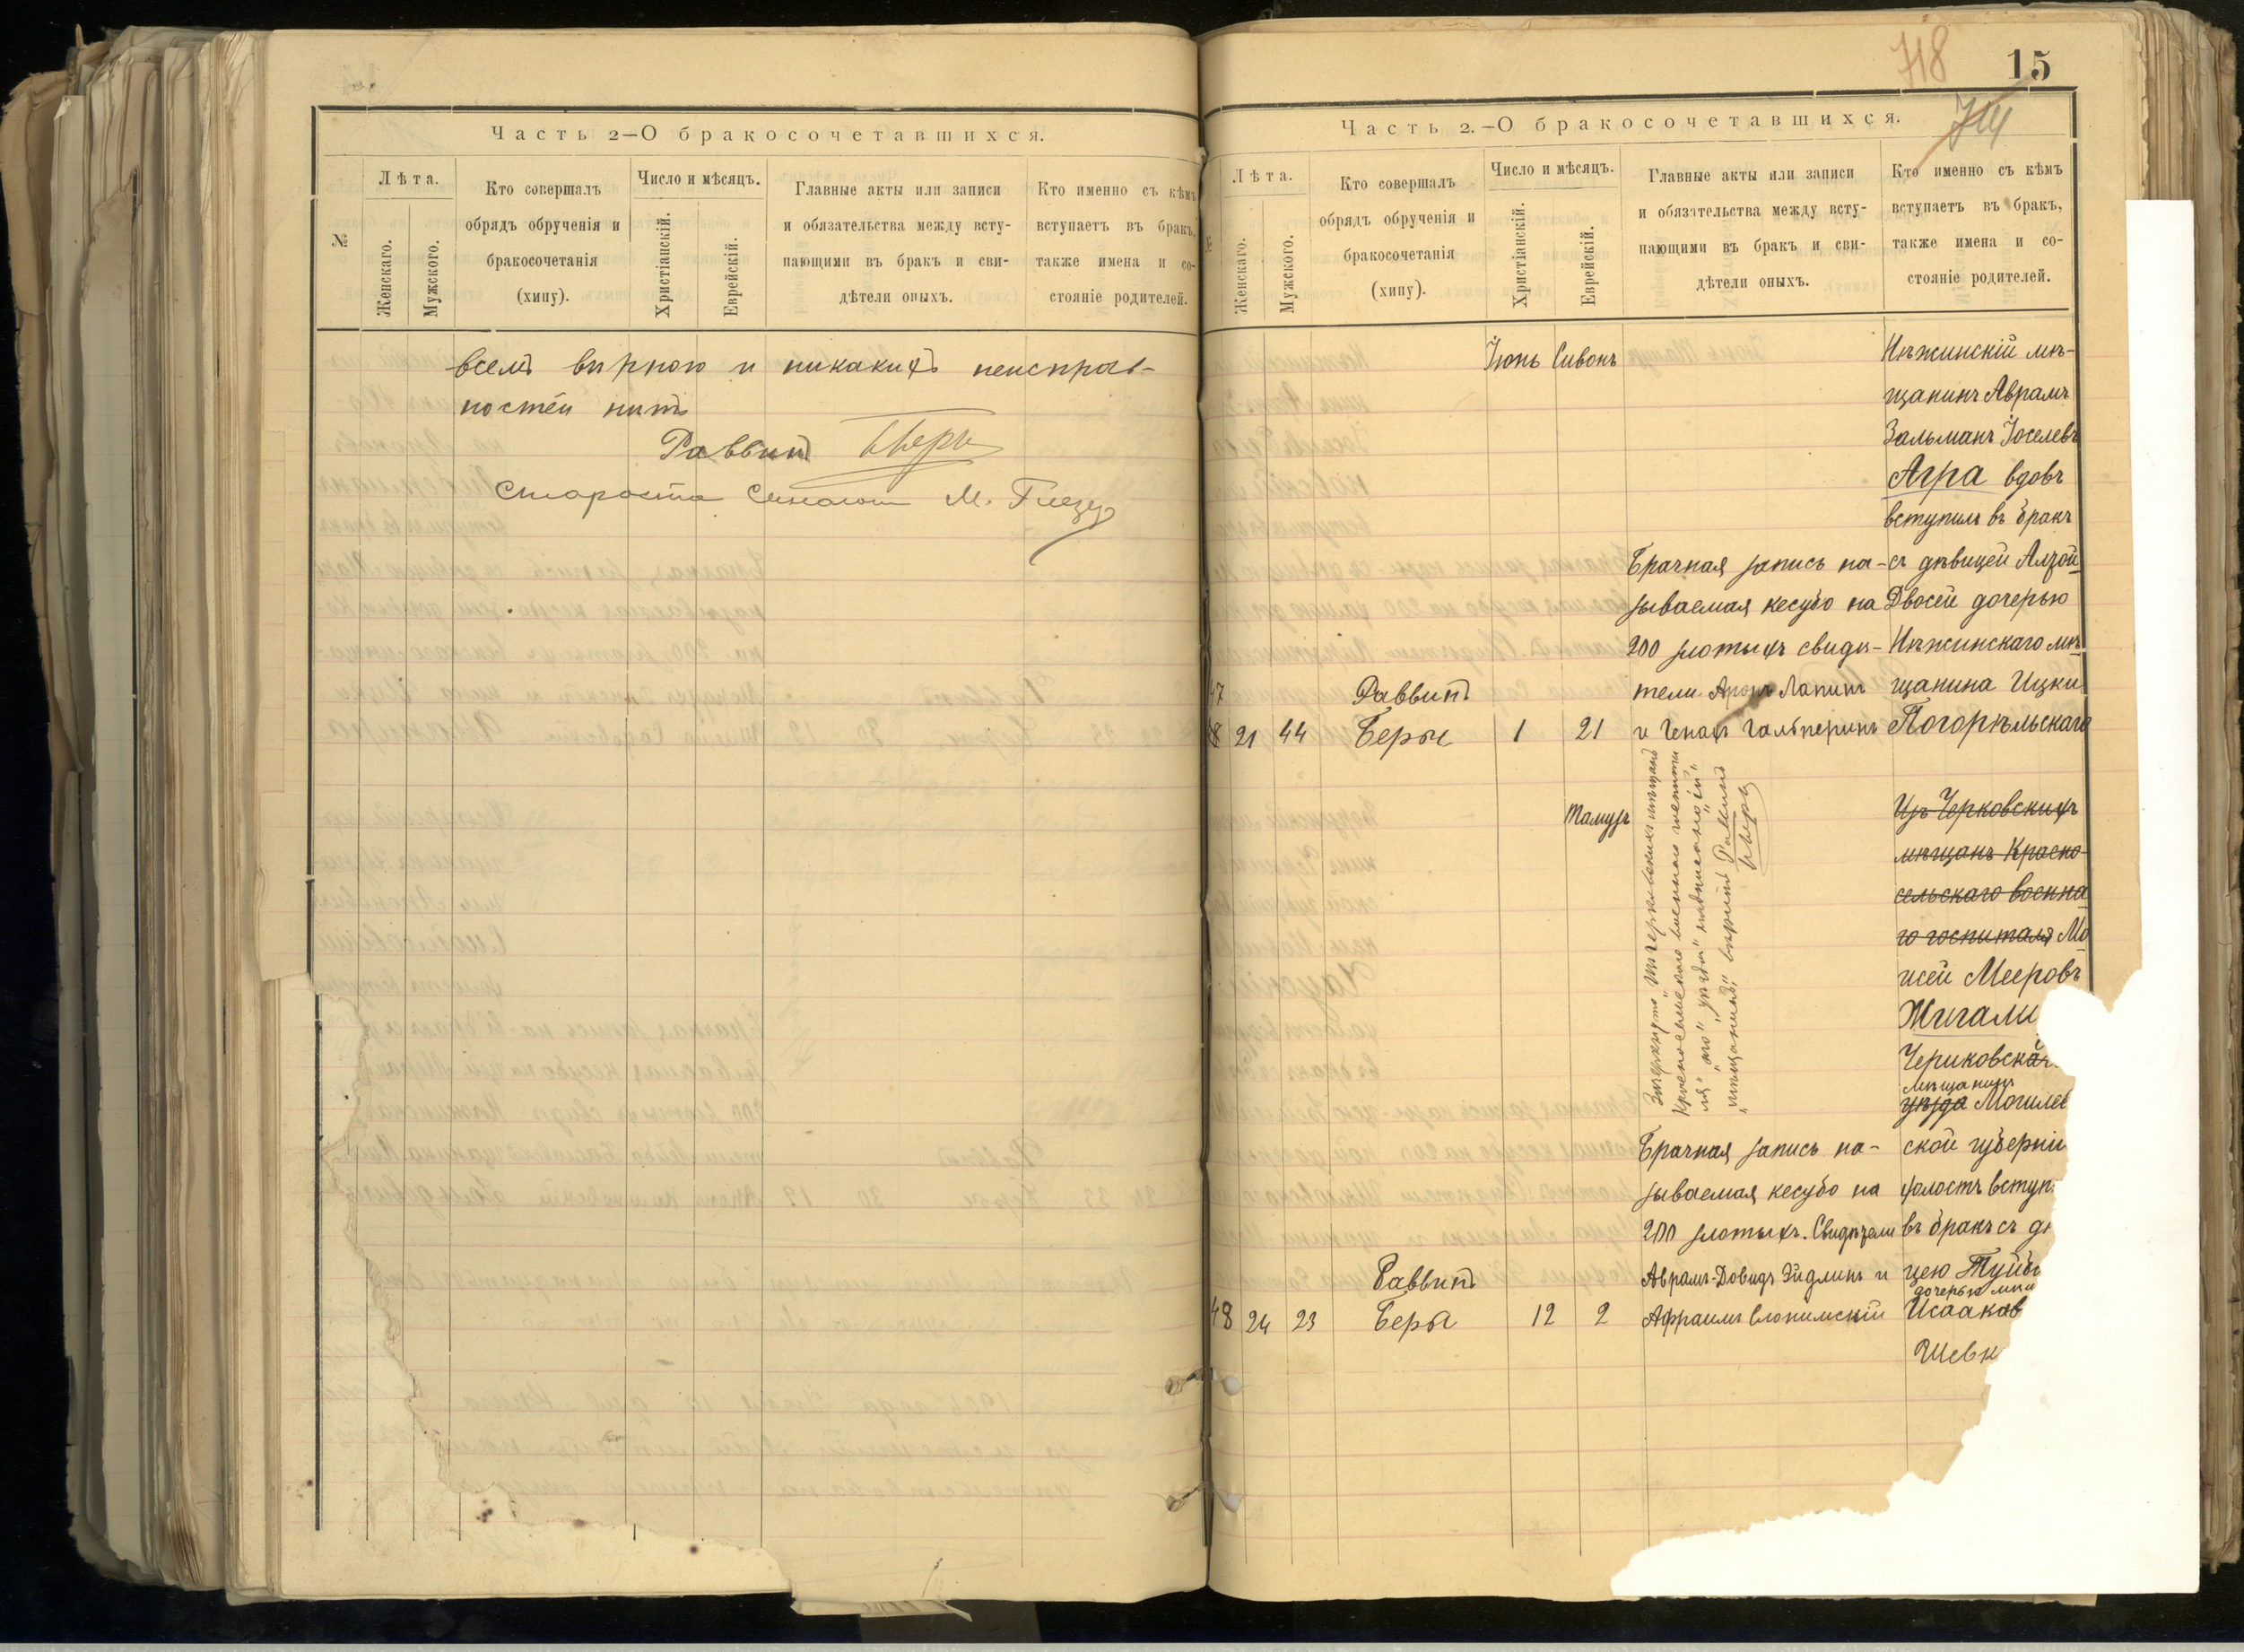 Часть 2—О бракосочетавшихся.
№
Лѣта.
Женскаго.
Мужского.
Кто совершалъ
обрядъ обрученія и
бракосочетанія
(хипу).
Число и мѣсяцъ.
Христіанскій.
Еврейскій.
Главные акты или записи
и обязательства между всту-
пающими въ бракъ и сви-
дѣтели оныхъ.
Кто именно съ кѣмъ
вступаетъ въ бракъ,
также имена и со-
стояніе родителей.
всемъ вѣрною и никакихъ неисправ-
ностей нѣтъ
Раввинъ
Староста М.
718
15
Часть 2.—О бракосочетавшихся.
Лѣта.
Женскаго.
Мужского.
Кто совершалъ
обрядъ обрученія и
бракосочетанія
(хипу).
Число и мѣсяцъ.
Христіанскій.
Еврейскій.
Главные акты или записи
и обязательства между всту-
пающими въ бракъ и сви-
дѣтели оныхъ.
Кто именно съ кѣмъ
вступаетъ въ бракъ,
также имена и со-
стояніе родителей.
Іюнь Сивонъ
47
21 44
Раввинъ
Беры
1 21
Брачная запись на-
зываемая кесубо на
200 злотыхъ свидѣ-
тели Аронъ Лапинъ
и Генахъ Гальперинъ
Нѣжинскій мѣ-
щанинъ Аврамъ
Зальманъ Іоселевъ
Агра вдовъ
вступилъ въ бракъ
съ дѣвицей
Двосей дочерью
Нѣжинскаго мѣ
щанина Ицки
Погорѣльскаго
Тамузъ
Зачеркнуто
Красносельскаго военнаго госпита
ля" уѣзда" надписаній"
"мѣщанинъ" вѣрить Раввинъ
48 24 23
Раввинъ
Беры
12 2
Брачная запись на-
зываемая кесубо на
200 злотыхъ. Свидѣтели
Аврамъ-Довидъ Эйдлинъ и
Афраимъ Слонимскій
Изъ Черковскихъ
мѣщанъ Красно-
сельскаго военна
го госпиталя Мо
исей Мееровъ
Жигали
Чериковск
мѣщанинъ
уѣзда Могилев
ской губерніи
холостъ вступ
въ бракъ съ дѣ
цею
дочерью мѣщ
Исааков
Шевк